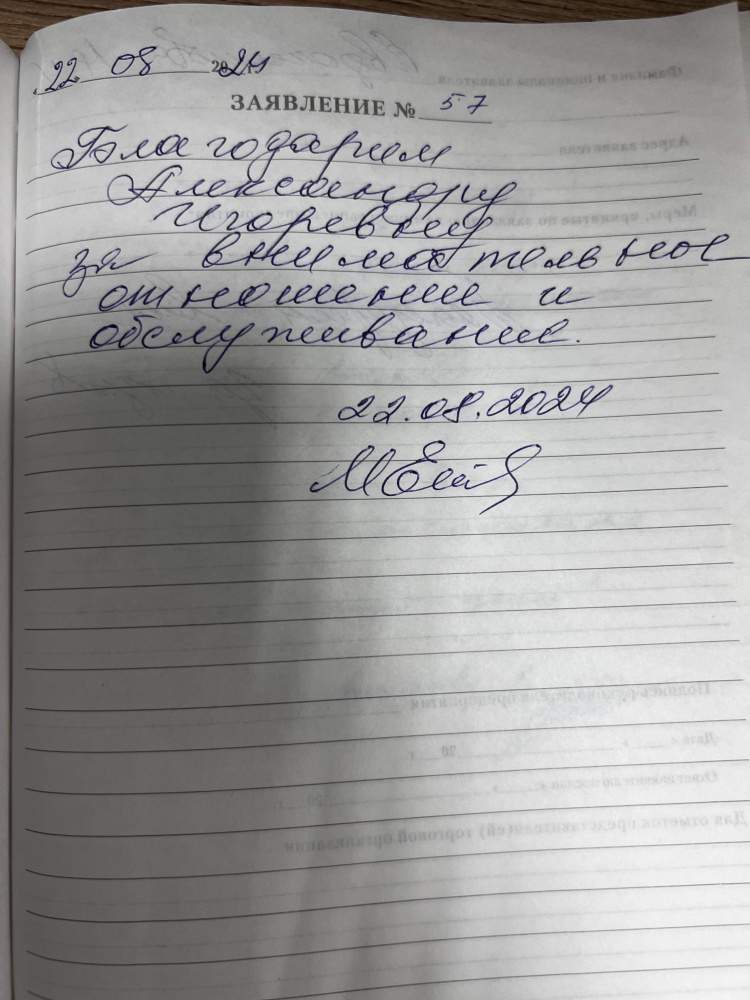 22 08 2024
ЗАЯВЛЕНИЕ № 57
Благодарим
Александру
Игоревну
за внимательное
отношение и
обслуживание.
22.08.2024